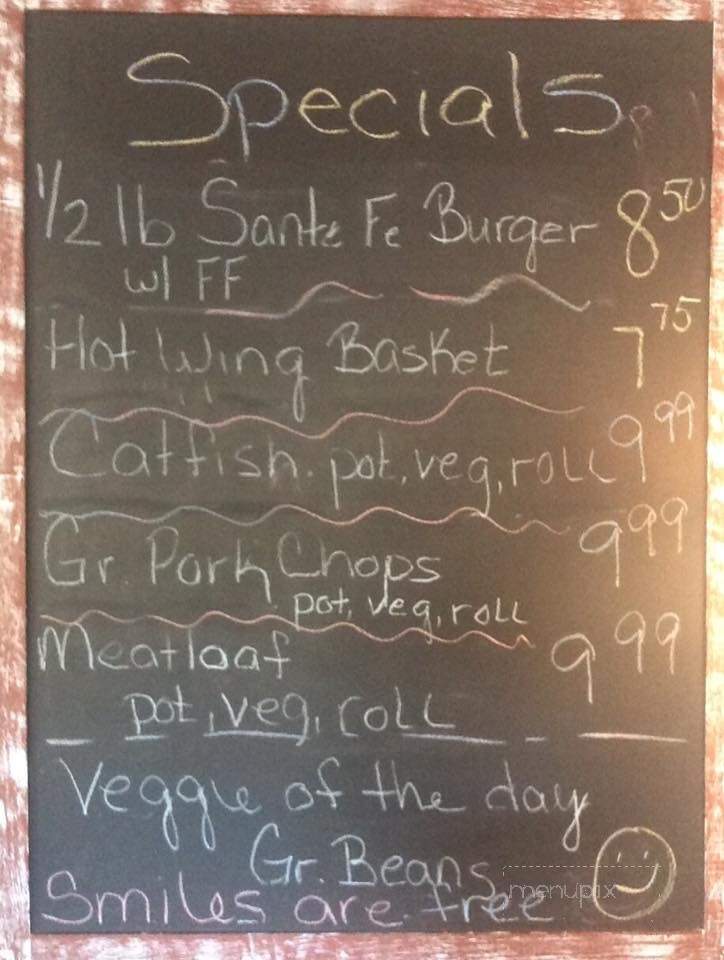 Specials
1/2 lb Sante Fe Burger 8 50
w/ FF
Hot Wing Basket 7 75
Catfish. pot, veg, roll 9 99
Gr. Pork Chops 9 99
pot, veg, roll
Meatloaf 9 99
pot, veg, roll
Veggie of the day
Gr. Beans
menupix
Smiles are free